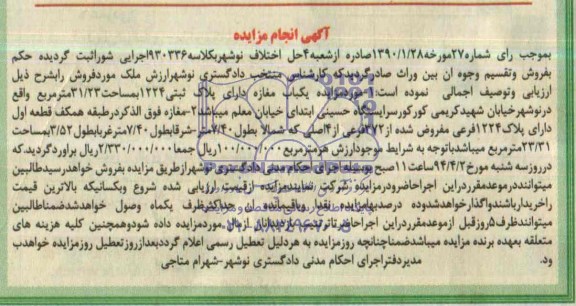 آگهی انجام مزایده
بموجب رای شماره۲۷مورخه۱۳۹۰/۱/۲۸صادره ازشعبه۴حل اختلاف نوشهربکلاسه۹۳۰۳۳۶اجرایی شوراثبت گردیده حکم
بفروش وتقسیم وجوه ان بین وراث صادرگردیدکه کارشناس منتخب دادگستری نوشهرارزش ملک موردفروش رابشرح ذیل
ارزیابی وتوصیف اجمالی نموده است:۱-موردمزایده یکباب مغازه دارای پلاک ثبتی۱۲۲۴بمساحت۳۱/۲۳مترمربع واقع
درنوشهرخیابان شهیدکریمی کورکورسراایستگاه حسینی ابتدای خیابان معلم میباشد۲-مغازه فوق الذکردرطبقه همکف قطعه اول
دارای پلاک۱۲۲۴فرعی مفروض شده از۲۷۲فرعی از۴اصلی که شمالا بطول۴/۲۰متر-شرقابطول۷/۴۰مترغربابطول۳/۵۲بمساحت
۲۳/۳۱مترمربع میباشدباتوجه به شرایط موجودارزش هرمترمربع ۱۰۰/۰۰۰/۰۰۰ریال جمعا۲/۳۳۰/۰۰۰/۰۰۰ریال براوردگردیدکه
درروزسه شنبه مورخ۹۴/۴/۲ساعت۱۱صبح بوسیله اجرای احکام مدنی دادگستری نوشهرازطریق مزایده بفروش خواهدرسیدطالبین
میتواننددرموعدمقرردراین اجراحاضرودرمزایده شرکت نمایندمزایده ازقیمت ارزیابی شده شروع وبکسانیکه بالاترین قیمت
راخریدارباشندواگذارخواهدشدوده درصدبهامزایده نقدا وباقیمانده حداکثرظرف یکماه وصول خواهدشدضمناطالبین
میتوانندظرف۵روزقبل ازموعدمقرردراین اجراحاضرتاترتیب بازدیدانان ازمال موردمزایده داده شودوهمچنین کلیه هزینه های
متعلقه بعهده برنده مزایده میباشدضمناچنانچه روزمزایده به هردلیل تعطیل رسمی اعلام گرددبعدازروزتعطیل روزمزایده خواهدب
ود. مدیردفتراجرای احکام مدنی دادگستری نوشهر-شهرام متاجی